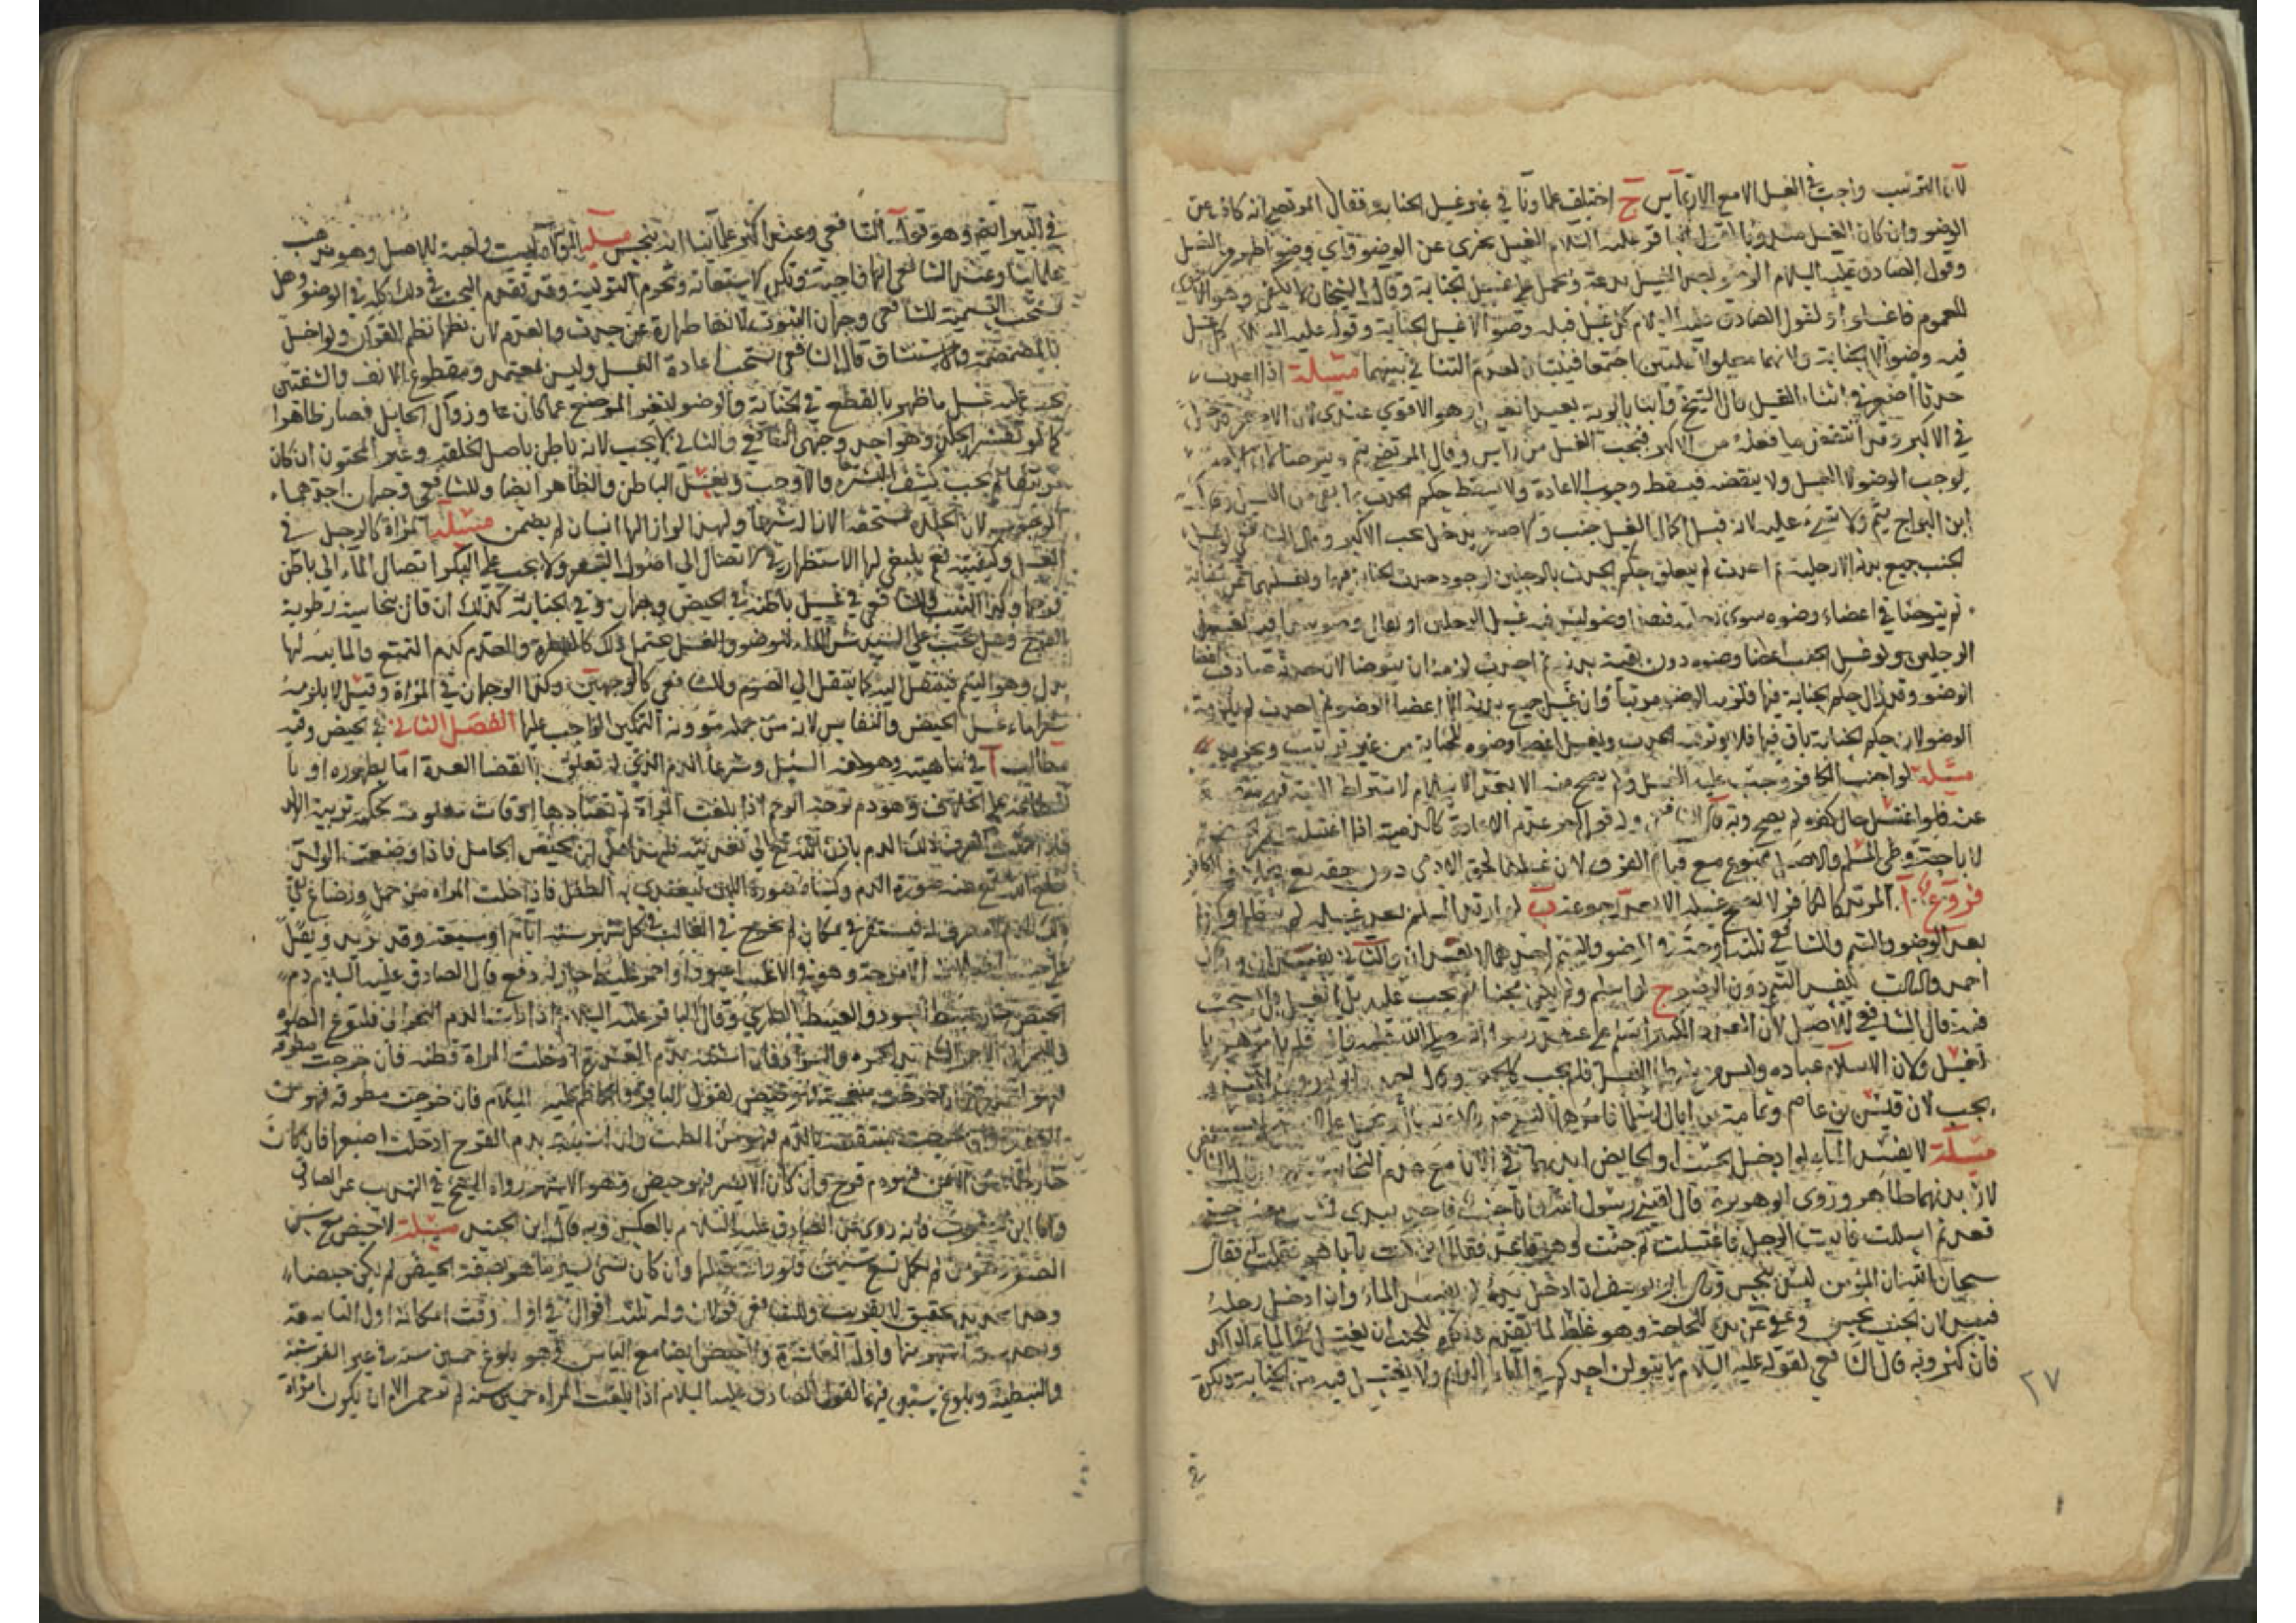 لان الترتيب واجب في الغسل الا مع الارتماس ح اختلف علماونا في غير غسل الجنابة فقال المرتضى انه كاف عن
الوضو وان كان الغسل مندوبا لقول الباقر عليه السلام الغسل يجزى عن الوضو واي وضو اطهر من الغسل
وقول الصادق عليه السلام الوضو بعد الغسل بدعة ويحمل على غسل الجنابة وقال الشيخان لا يكفي وهو الاقوى
للعموم فاغسلوا ولقول الصادق عليه السلام كل غسل قبله وضو الا غسل الجنابة وقوله عليه السلام كل غسل
فيه وضو الا الجنابة ولانهما معلولا علتين اجتمعا فيثبتان لعدم التنافي بينهما مسئلة اذا احدث
حدثا اصغر في اثناء الغسل قال الشيخ وابنا بابويه يعيد الغسل وهو الاقوى عندي لان الاصغر
في الاكبر وقد انتقض ما فعله من الاكبر فيجب الغسل من راس وقال المرتضى يتم ويتوضا لان الاصغر
يوجب الوضو لا الغسل ولا ينقضه فيسقط وجوب الاعادة ولا يسقط حكم الحدث بما بقى من الغسل وقال
ابن البراج يتم ولا شيء عليه لانه قبل اكمال الغسل جنب والاصغر يدخل تحت الاكبر وقال الشافعي لو غسل
الجنب جميع بدنه الا رجليه ثم احدث لم يتعلق حكم الحدث بالرجلين لوجود حدث الجنابة فيهما ويغسلهما عن الجنابة
ثم يتوضا في اعضاء وضوه
الرجلين ولو غسل الجنب اعضا وضوه دون بقية بدنه ثم احدث لزمه ان يتوضا لان حدثه صادف اعضا
الوضو وقد زال حكم الجنابة فيها فلزمه الوضو مرتبا وان غسل جميع بدنه الا اعضا الوضو ثم احدث لم يلزمه
الوضو لان حكم الجنابة باق فيها فلا يوثر الحدث ويغسل اعضا وضوه للجنابة من غير ترتيب ويجزيه
مسئلة لو اجنب الكافر وجب عليه الغسل ولم يصح منه الا بعد الاسلام لاشتراط النية
عنه فلو اغتسل حال كفره لم يصح وبه قال الشافعي وله قول اخر عدم الاعادة كالذمية اذا اغتسلت
لاباحة وطى المسلم والاصل ممنوع مع قيام الفرق لان غسلها لحق الادمى
فروع آ المرتد كالكافر لا يصح غسله الا بعد رجوعه ب لو ارتد المسلم بعد غسله لم يبطل وكذا
بعد الوضو والتيمم وللشافعي ثلثة اوجه في الوضو والتيمم احدها لا يفسدان والثاني يفسدان وبه قال
احمد والثالث يفسد التيمم دون الوضو ج لو اسلم ولم يكن مجنبا لم يجب عليه الغسل بل استحب
فبه قال الشافعي للاصل لان العدد الكثير اسلم على عهد رسول الله صلى الله عليه واله فلم يامرهم بالغسل
ولان الاسلام عباده وليس من شرطها الغسل فلم يجب كالجمعة وقال احمد
يجب لان قيس بن عاصم وثمامة بن اثال اسلما فامرهما النبي صلى الله عليه وآله ويحمل على الاستحباب
مسئلة لا يفسد الماء لو ادخل الجنب او الحايض ايديهما في الاناء مع عدم النجاسة وبه قال الشافعي
لان بدنهما طاهر وروى ابو هريرة قال لقيني رسول الله وانا جنب فاخذ بيدي فمشيت معه حتى
قعد ثم انسللت فاتيت الرحل فاغتسلت ثم جئت وهو قاعد فقال اين كنت يا ابا هر فقلت له فقال
سبحان الله ان المؤمن ليس بنجس وقال ابو يوسف ان ادخل يده لم يفسد الماء وان ادخل رجله
فسد لان الجنب نجس وعفي عن يده للحاجة وهو غلط لما تقدم ويكره للجنب ان يغتسل في الماء الراكد
فان كثر وبه قال الشافعي لقوله عليه السلام لا يبولن احدكم في الماء الدايم ولا يغتسل فيه من الجنابة ويكره
٢٧
في
في البئر ايضا وهو قول الشافعي وعند اكثر علمائنا انه ينجس مسئلة الموالاة ليست واجبة للاصل وهو مذهب
علمائنا وعند الشافعي انها واجبة وتكره الاستعانة وتحرم التولية وقد تقدم البحث في ذلك كله في الوضو وهل
تستحب التسمية للشافعي وجهان الثبوت لانها طهارة عن حدث والعدم لان نظمها نظم القران ولو اخل
بالمضمضة والاستنشاق قال الشافعي يستحب اعادة الغسل وليس بمعتمد ومقطوع الانف والشفتين
يجب عليه غسل ما ظهر بالقطع في الجنابة والوضو لتغير الموضع عما كان عليه وزوال الحايل فصار ظاهرا
كما لو تقشر الجلد وهو احد وجهى الشافعي والثاني لا يجب لانه باطن باصل الخلقة وغير المختون ان كان
مرتتقا لم يجب كشف البشرة والا وجب وبغسل الباطن والظاهر ايضا وللشافعي وجهان احدهما
الوجوب لان الجلدة مستحقة الازالة شرعا ولهذا لو ازالها انسان لم يضمن مسئلة المراة كالرجل في
الغسل وكيفيته نعم ينبغي لها الاستظهار في الايصال الى اصول الشعر ولا يجب على البكر ايصال الماء الى باطن
فرجها وكذا الثيب وللشافعي في غسل باطنه في الحيض وجهان وفي الجنابة كذلك ان قال بنجاسة رطوبة
الفرج وهل يجب على السيد شراء الماء للوضو والغسل يحتمل ذلك كالفطرة والعدم كدم التمتع والما ليس لها
بدل وهو التيمم فينتقل اليه كما ينتقل الى الصوم وللشافعي كالوجهين وكذا الوجهان في المراة وقيل لا يلزمه
شراء ماء غسل الحيض والنفاس لانه من جملة مؤونة التمكين الواجب عليها الفصل الثاني في الحيض وفيه
مطالب آ في ماهيته وهو لغة السيل وشرعا الدم الذي له تعلق بانقضا العدة اما بظهوره او با
نقطاعه على الخلاف وهو دم يرخيه الرحم اذا بلغت المراة ثم تعتادها في اوقات معلومة لحكمة تربية الولد
فاذا حملت انصرف ذلك الدم باذن الله تعالى الى تغذيته فلهذا قل ان تحيض الحامل فاذا وضعت الولد
خلع الله تع عنه صورة الدم وكساه صورة اللبن ليغتذى به الطفل فاذا خلت المراة من حمل ورضاع بقى
ذلك الدم لا مصرف له فيستقر في مكان ثم يخرج في الغالب في كل شهر ستة ايام او سبعة وقد يزيد ويقل
على حسب اختلاف الامزجة وهو في الاغلب اسود او احمر غليظ حار له دفع قال الصادق عليه السلام دم
الحيض حار عبيط اسود والعبيط الطري وقال الباقر عليه السلام اذا رات الدم البحراني فلتدع الصلوة
والبحراني الاحمر الشديد الحمرة والسواد فان اشتبه بدم العذرة ادخلت المراة قطنة فان خرجت مطوقة
فهو لعذرة وان خرجت منغمسة فهو حيض لقول الباقر والكاظم عليهما السلام فان خرجت مطوقة فهو من
العذرة وان خرجت مستنقعة بالدم فهو من الطمث وان اشتبه بدم القرح ادخلت اصبعها فان كان
خارجا من الايمن فهو دم قرح وان كان الايسر فهو حيض وهو الاشهر رواه الشيخ في التهذيب عن الصادق
واما ابن يعقوب فانه روى عن الصادق عليه السلام بالعكس وبه قال ابن الجنيد مسئلة لا حيض مع سن
الصغر وهو من لم تكمل تسع سنين فلو رات قبلها وان كان شئ ليسير ما هو بصفة الحيض لم يكن حيضا
وهذا تحديد تحقيق لا تقريب وللشافعي قولان وله ثلثة اقوال في اول وقت امكانه اول التاسعة
وبعد ستة اشهر منها واول العاشرة ولا حيض ايضا مع الياس وهو بلوغ خمسين سنة في غير القرشية
والنبطية وبلوغ ستين فيهما لقول الصادق عليه السلام اذا بلغت المراة خمسين سنة لم تر حمرة الا ان تكون امراة